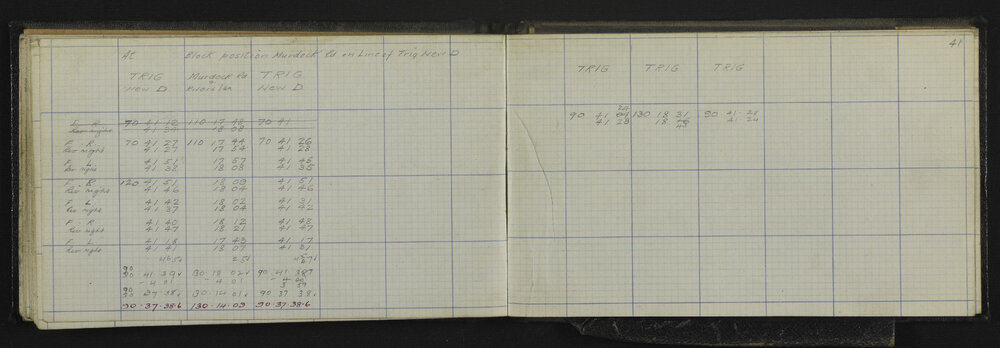 At Block position Murdock Rd on Line of Trig New D
TRIG Murdock Rd TRIG
New D & Riverslea New D
F R 70 41 12 110 17 48 70 41
Rev right 41 34 18 08
F R 70 41 27 110 17 44 70 41 26
Rev right 41 27 17 54 41 28
F L 41 51 17 57 41 45
Rev right 41 38 18 08 41 35
F R 120 41 51 18 09 41 51
Rev right 41 46 18 04 41 46
F L 41 42 18 02 41 31
Rev right 41 37 18 04 41 42
F R 41 40 18 12 41 48
Rev right 41 47 18 21 41 47
F L 41 18 17 43 41 17
Rev right 41 41 18 07 41 31
90 41 39 130 18 02 90 41 387
- 4 01 - 4 01
90 37 38 130 14 01 90 37 38
90-37-38.6 130-14-03 90-37-38.6
41
TRIG TRIG TRIG
90 41 130 18 31 90 41 21
41 28 18 41 24